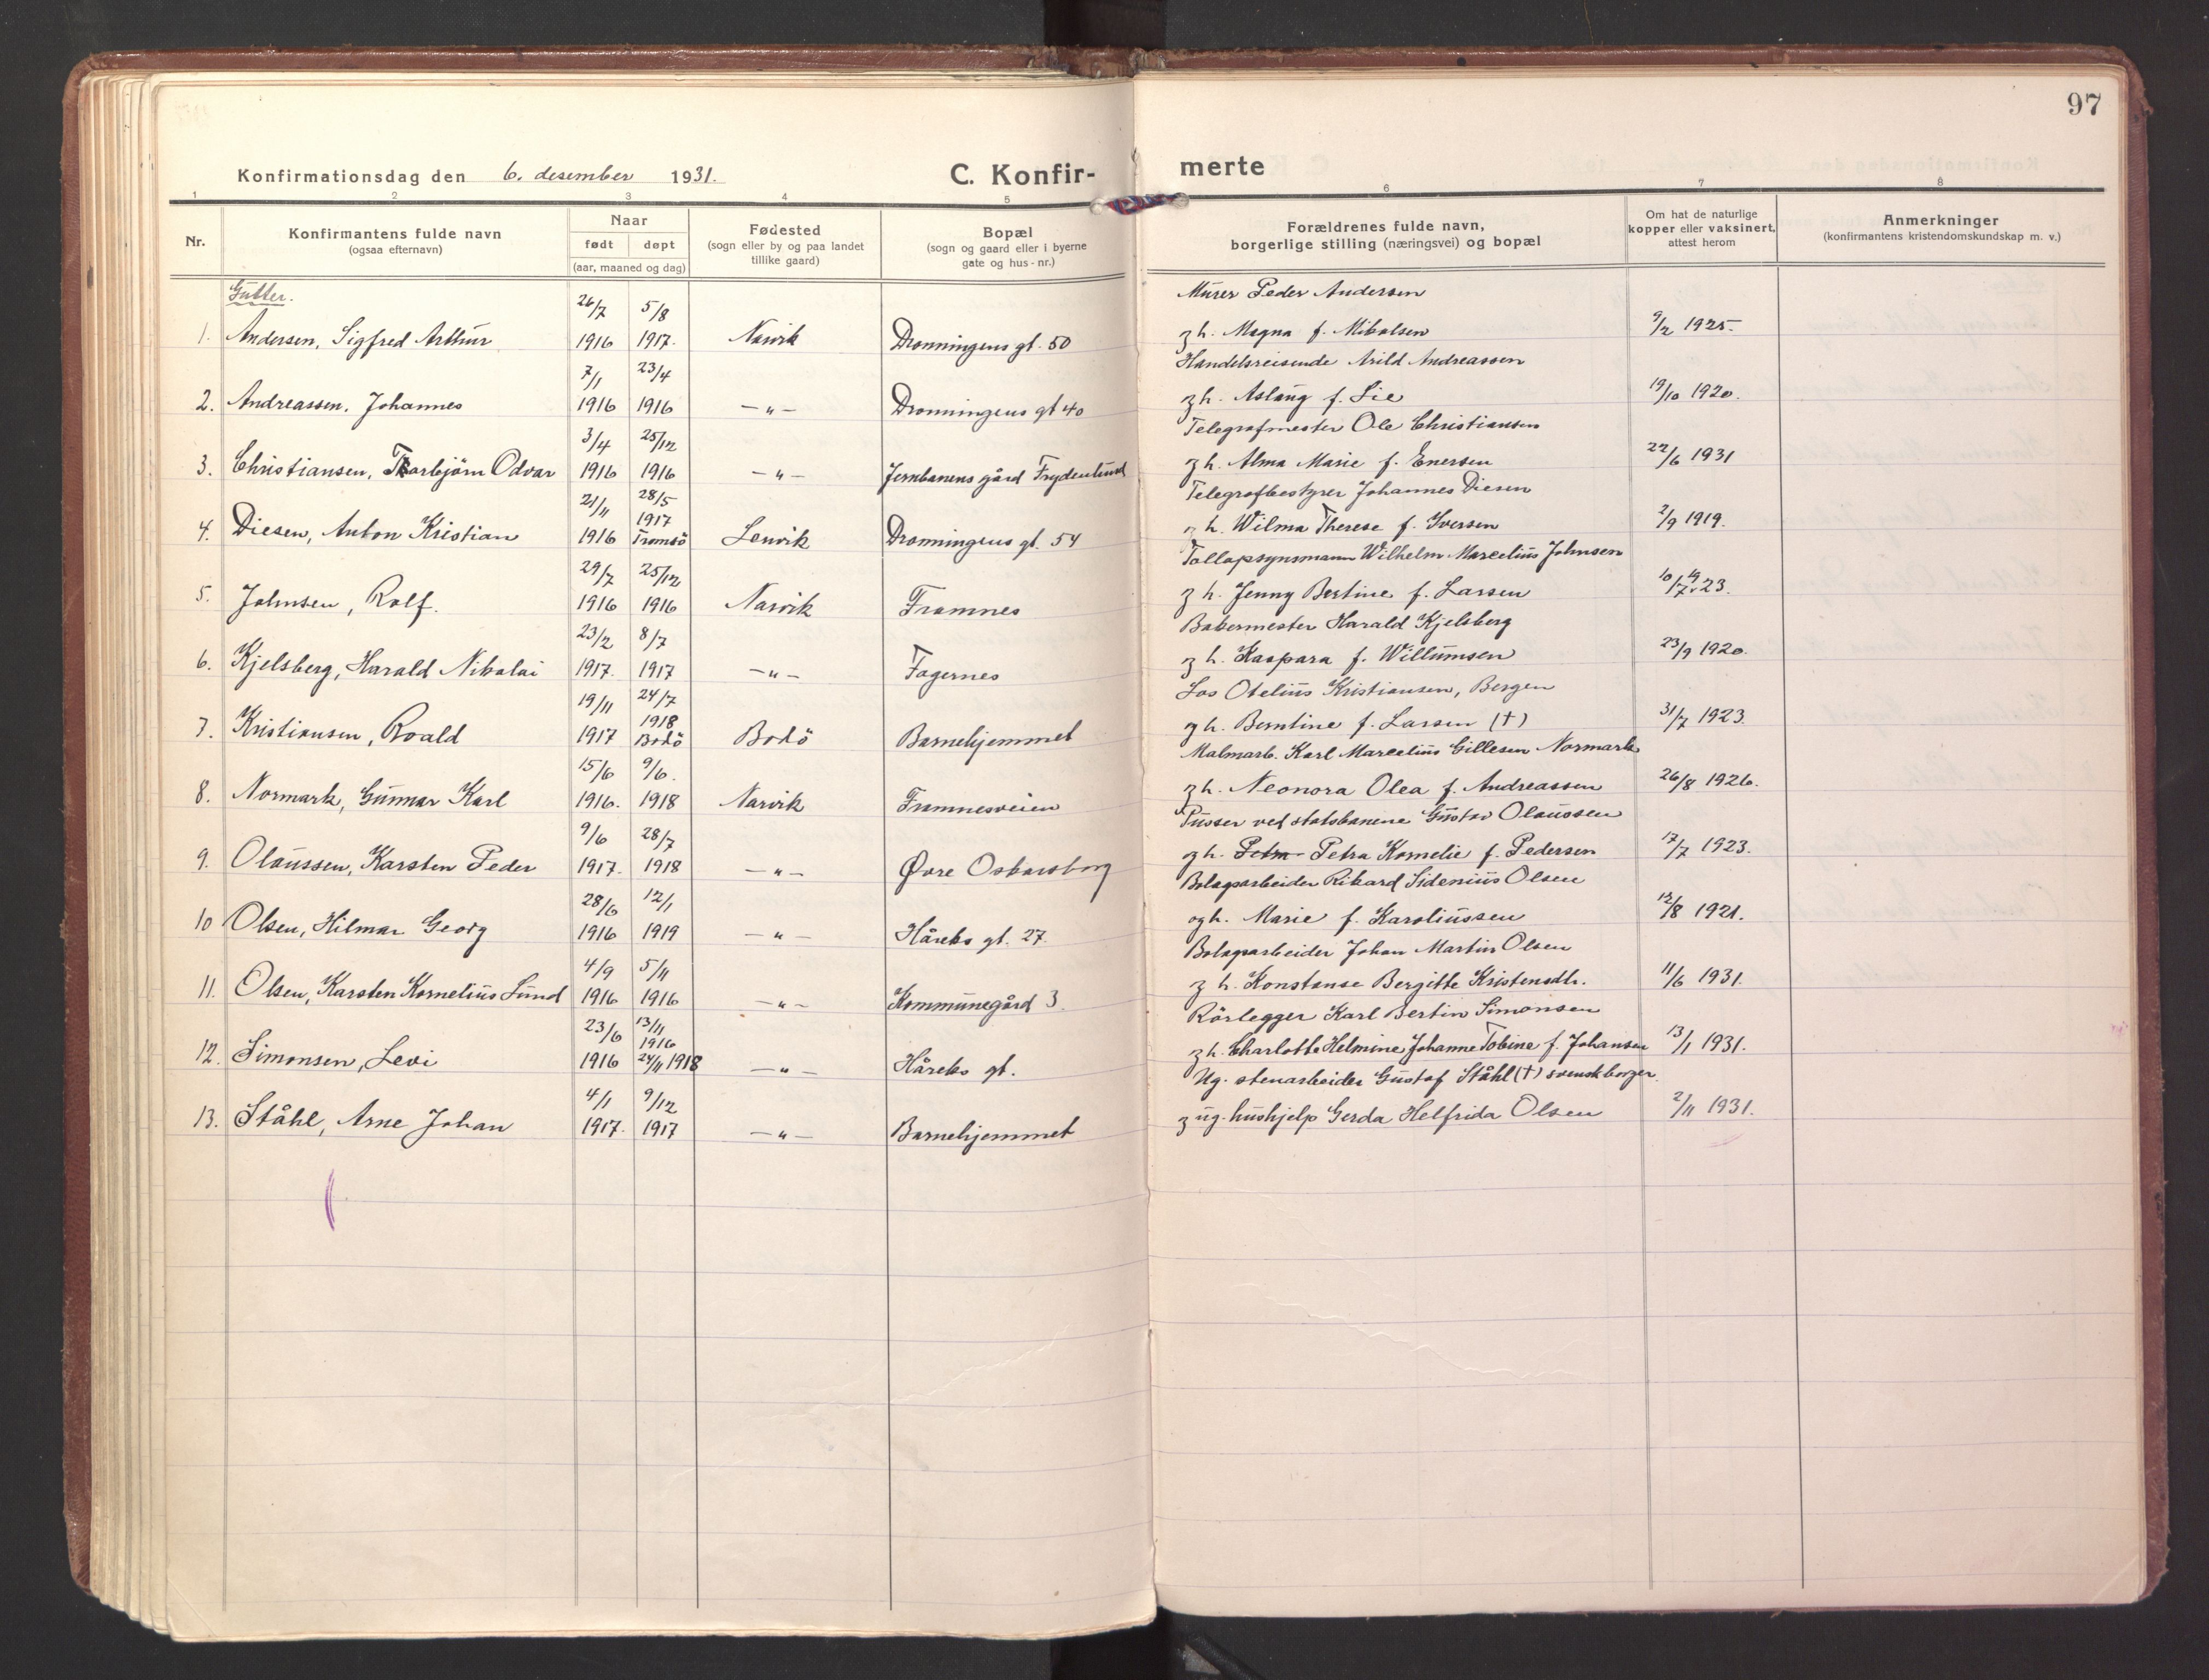 97
Konfirmationsdag den 6. desember 1931.
C. Konfir-
merte
1 2 3 4 5 6 7 8
Nr.
Konfirmantens fulde navn
(ogsaa efternavn)
Naar
født døpt
(aar, maaned og dag)
Fødested
(sogn eller by og paa landet
tillike gaard)
Bopæl
(sogn og gaard eller i byerne
gate og hus-nr.)
Forældrenes fulde navn,
borgerlige stilling (næringsvei) og bopæl
Om hat de naturlige
kopper eller vaksinert,
attest herom
Anmerkninger
(konfirmantens kristendomskundskap m. v.)
Gutter.
26/7 5/8 Murer Peder Andersen
1. Andersen, Sigfred Arthur 1916 1917. Narvik Dronningens gt. 50 og h. Magna f. Mikalsen 9/2 1925.
7/1 23/4 Handelsreisende Arild Andreassen
2. Andreassen, Johannes 1916 1916 —"— Dronningens gt 40 og h. Aslaug f. Lie 19/10 1920.
3/4 25/12 Telegrafmester Ole Christiansen
3. Christiansen, Torbjörn Odvar 1916 1916 —"— Jernbanens gård Frydenlund og h. Alma Marie f. Enersen 22/6 1931
21/11 28/5 1917 Telegrafbestyrer Johannes Diesen
4. Diesen, Anton Kristian 1916 Tromsö Lenvik Dronningens gt. 54 og h. Wilma Therese f. Iversen 2/9 1919.
29/7 25/12 Tollopsynsmann Wilhelm Marcelius Johnsen
5. Johnsen, Rolf. 1916 1916 Narvik Framnes og h. Jenny Bertine f. Larsen 10/7 1923.
23/2 8/7 Bakermester Harald Kjelsberg
6. Kjelsberg, Harald Nikolai 1917. 1917 —"— Fagernes og h. Kaspara f. Willumsen 23/9 1920.
19/11 24/7 1918 Los Otelius Kristiansen, Bergen
7. Kristiansen, Roald 1917 Bodö Bodö Barnehjemmet og h. Berntine f. Larsen (†) 31/7 1923.
15/6 9/6. Malmarb. Karl Marcelius Gillesen Normark
8. Normark, Gunnar Karl 1916. 1918 Narvik Framnesveien og h. Neonora Olea f. Andreassen 26/8 1926.
9/6 28/7 Pusser ved statsbanene Gustav Olaussen
9. Olaussen, Karsten Peder 1917. 1918 —"— Øvre Oskarsborg og h. Petra Petra Kornelie f. Pedersen 17/7 1923.
28/6 12/1 Bolagsarbeider Rikard Sidenius Olsen
10 Olsen, Hilmar Georg 1916 1919 —"— Håreks gt. 27. og h. Marie f. Karoliussen 12/8 1921.
4/9 5/11 Bolagsarbeider Johan Martin Olsen
11. Olsen, Karsten Kornelius Lund 1916 1916 —"— Kommunegård 3. og h. Konstanse Bergitte Kristensdtr. 11/6 1931.
23/6 13/11 1916 Rörlegger Karl Bertin Simonsen
12. Simonsen, Levi 1916 24/11 1918 —"— Håreks gt. og h. Charlotte Helmine Johanne Tobine f. Johansen 13/1 1931.
4/1 9/12 Ug. stenarbeider Gustaf Ståhl (†) svensk borger.
13. Ståhl, Arne Johan 1917. 1917 —"— Barnehjemmet og ug. hushjelp Gerda Helfrida Olsen 2/11 1931.